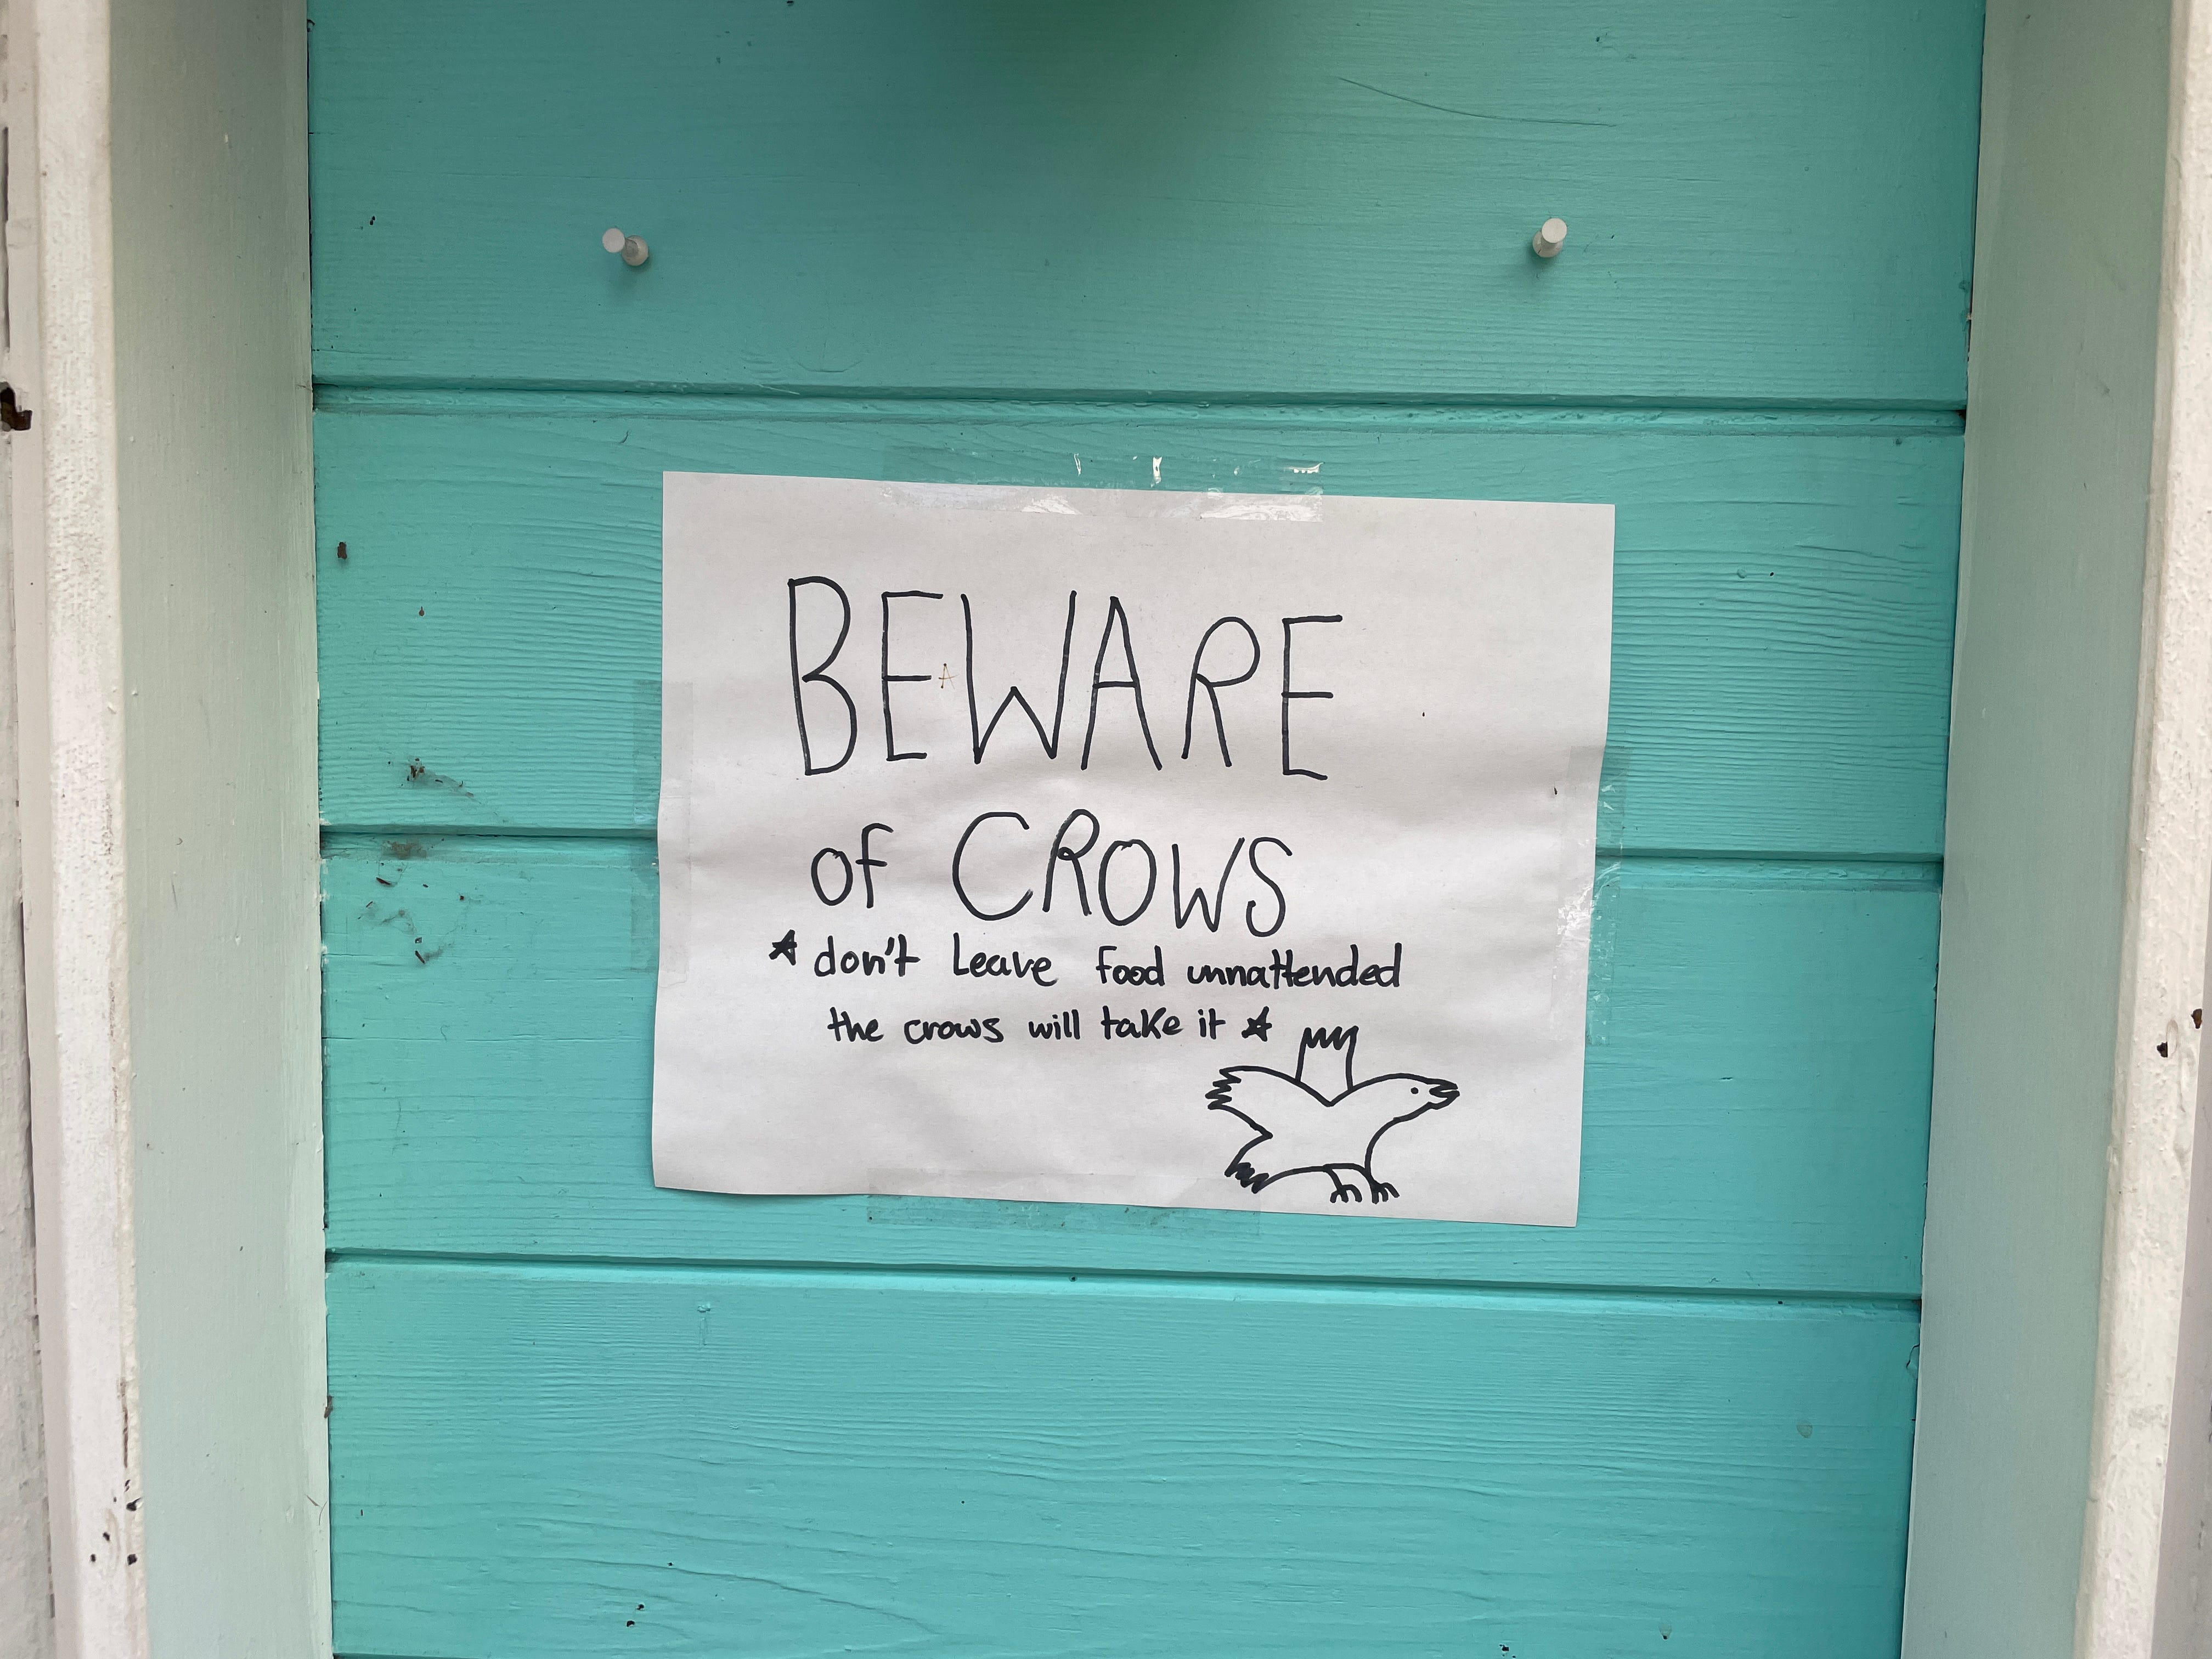 BEWARE
of CROWS
☆ don't Leave food unnattended
the crows will take it ☆